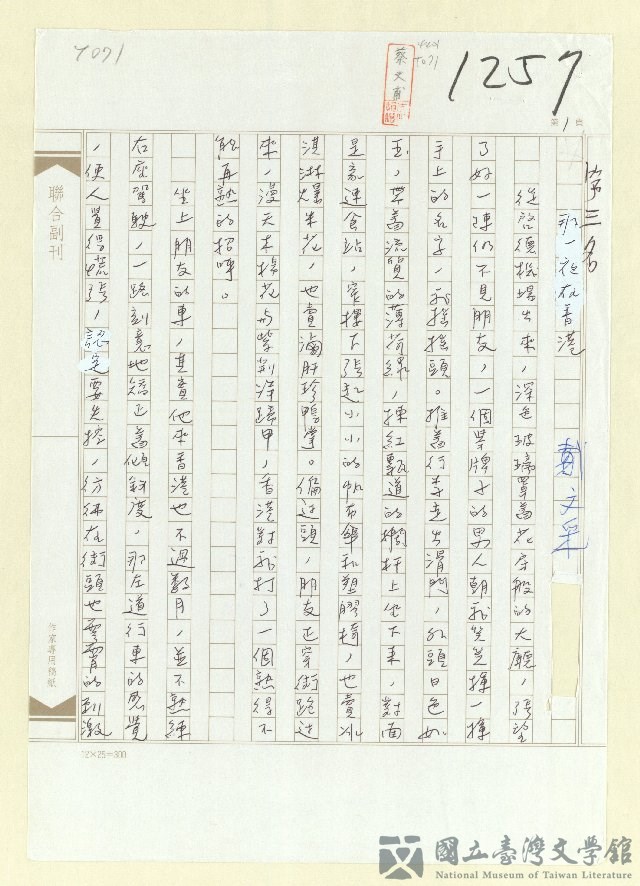 Y071
蔡文甫
Y071
1257
第1頁
第三名
那一夜在香港
戴文采
從啟德機場出來，深色玻璃罩著花房般的大廳，張望
了好一陣仍不見朋友，一個舉牌子的男人朝我笑笑揮一揮
手上的名字，我搖搖頭。推著行李走出滑門，外頭日色如
玉，帶著流質的薄荷綠，揀紅甎道的欄杆上坐下來，對面
是高速食站，窗擇下張起小小的帆布傘和塑膠椅，也賣冰
淇淋爆米花，也賣滷肝珍鴨掌。偏過頭，朋友正穿街跑過
來，漫天木棉花與紫荊洋蹄甲，香港對我打了一個熟得不
能再熟的招呼。
坐上朋友的車，其實他來香港也不過數月，並不熟練
右座駕駛，一路刻意地矯正著傾斜度，那左道行車的感覺
，便人覺得慌張，認定要失控，彷彿在街頭也要冒的刺激
聯合副刊
作家專用稿紙
12×25=300
國立臺灣文學館
National Museum of Taiwan Literature